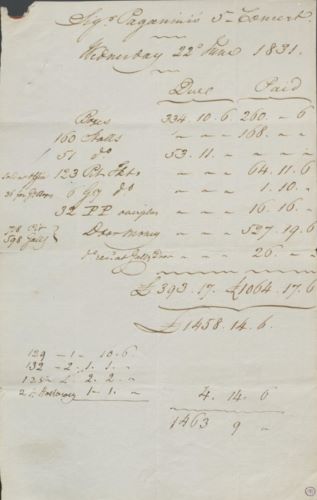 Sigr Paganini's 5th Concert
Wednesday 22d June 1831.
Due Paid
Boxes 334. 10. 6 260. – 6
160 Stalls " – – 168. – –
51 do 53. 11. – – – –
123 Pit Tkts – – – 64. 11. 6
6 Gy do – – – 1. 10. –
32 PP – – – 16. 16. –
Door money – – – 527. 19. 6
26. –
£393. 17. £1064. 17. 6
£1458. 14. 6.
129 – 1 – 10. 6.
132 – 2. 1. 1. –
2. 2. –
1 – 1. –
4. 14. 6
1463 9 –